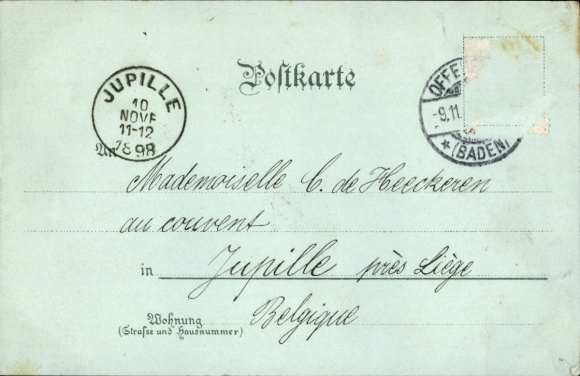 Postkarte
JUPILLE
10
NOVE
11-12
1898
OFFE
-9.11.
*(BADEN)
An
Mademoiselle C. de Heeckeren
au couvent
in Jupille près Liège
Belgique
Wohnung
(Strasse und Hausnummer)